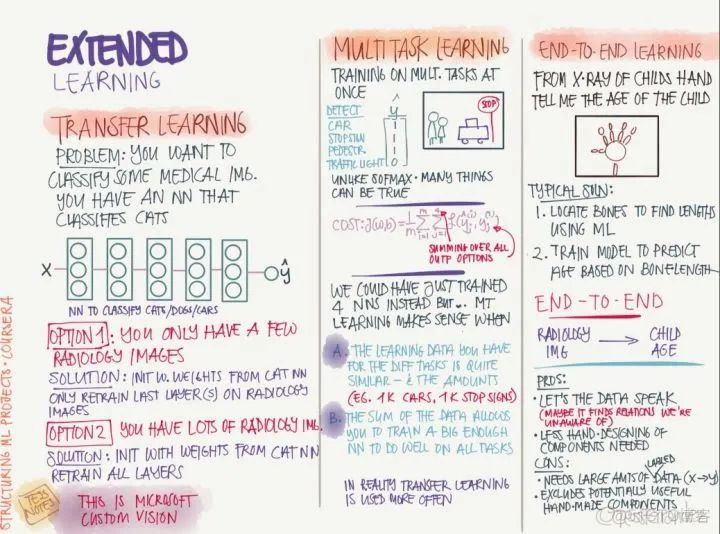 EXTENDED
LEARNING
TRANSFER LEARNING
PROBLEM: YOU WANT TO
CLASSIFY SOME MEDICAL IMG.
YOU HAVE AN NN THAT
CLASSIFIES CATS
X
ŷ
NN TO CLASSIFY CATS/DOGS/CARS
OPTION 1: YOU ONLY HAVE A FEW
RADIOLOGY IMAGES
SOLUTION: INIT W. WEIGHTS FROM CAT NN
ONLY RETRAIN LAST LAYER(S) ON RADIOLOGY
IMAGES
OPTION 2 YOU HAVE LOTS OF RADIOLOGY IMG.
SOLUTION: INIT WITH WEIGHTS FROM CAT NN
RETRAIN ALL LAYERS
TESS
NOTE
THIS IS MICROSOFT
CUSTOM VISION
STRUCTURING ML PROJECTS · COURSERA
MULTI TASK LEARNING
TRAINING ON MULT. TASKS AT
ONCE
DETECT ŷ
CAR
STOPSIGN
PEDESTR.
TRAFFIC LIGHT
STOP
UNLIKE SOFMAX · MANY THINGS
CAN BE TRUE
SUMMING OVER ALL
OUTP OPTIONS
WE COULD HAVE JUST TRAINED
4 NNS INSTEAD BUT... MT
LEARNING MAKES SENSE WHEN
A. THE LEARNING DATA YOU HAVE
FOR THE DIFF TASKS IS QUITE
SIMILAR - & THE AMOUNTS
(EG. 1K CARS, 1K STOP SIGNS)
B. THE SUM OF THE DATA ALLOWS
YOU TO TRAIN A BIG ENOUGH
NN TO DO WELL ON ALL TASKS
IN REALITY TRANSFER LEARNING
IS USED MORE OFTEN
END-TO-END LEARNING
FROM X-RAY OF CHILDS HAND
TELL ME THE AGE OF THE CHILD
TYPICAL SOLN:
1. LOCATE BONES TO FIND LENGTHS
USING ML
2. TRAIN MODEL TO PREDICT
AGE BASED ON BONELENGTH
END-TO-END
RADIOLOGY → CHILD
IMG AGE
PROS:
• LET'S THE DATA SPEAK
(MAYBE IT FINDS RELATIONS WE'RE
UNAWARE OF)
• LESS HAND-DESIGNING OF
COMPONENTS NEEDED
CONS:
LABLED
• NEEDS LARGE AMTS OF DATA (X→Y)
• EXCLUDES POTENTIALLY USEFUL
HAND-MADE COMPONENTS